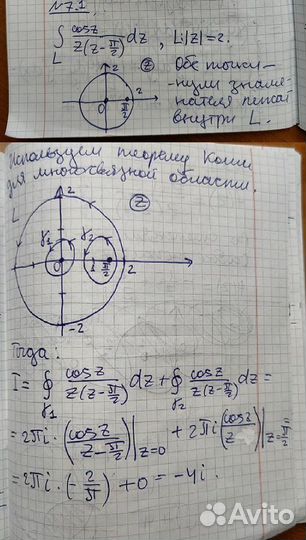 N7.1
∫_L cosz / z(z-π/2) dz , L: |z|=2.
Обе точки-
-нули знаме-
нателя лежат
внутри L.
z
2
0
π/2
2
Используем теорему Коши
для многосвязной области.
L
2
z
γ1
γ2
0
1
π/2
2
-2
Тогда:
I = ∮_γ1 cosz / z(z-π/2) dz + ∮_γ2 cosz / z(z-π/2) dz =
= 2πi · (cosz / z-π/2)|z=0 + 2πi (cosz / z)|z=π/2 =
= 2πi · (-2/π) + 0 = -4i.
Avito